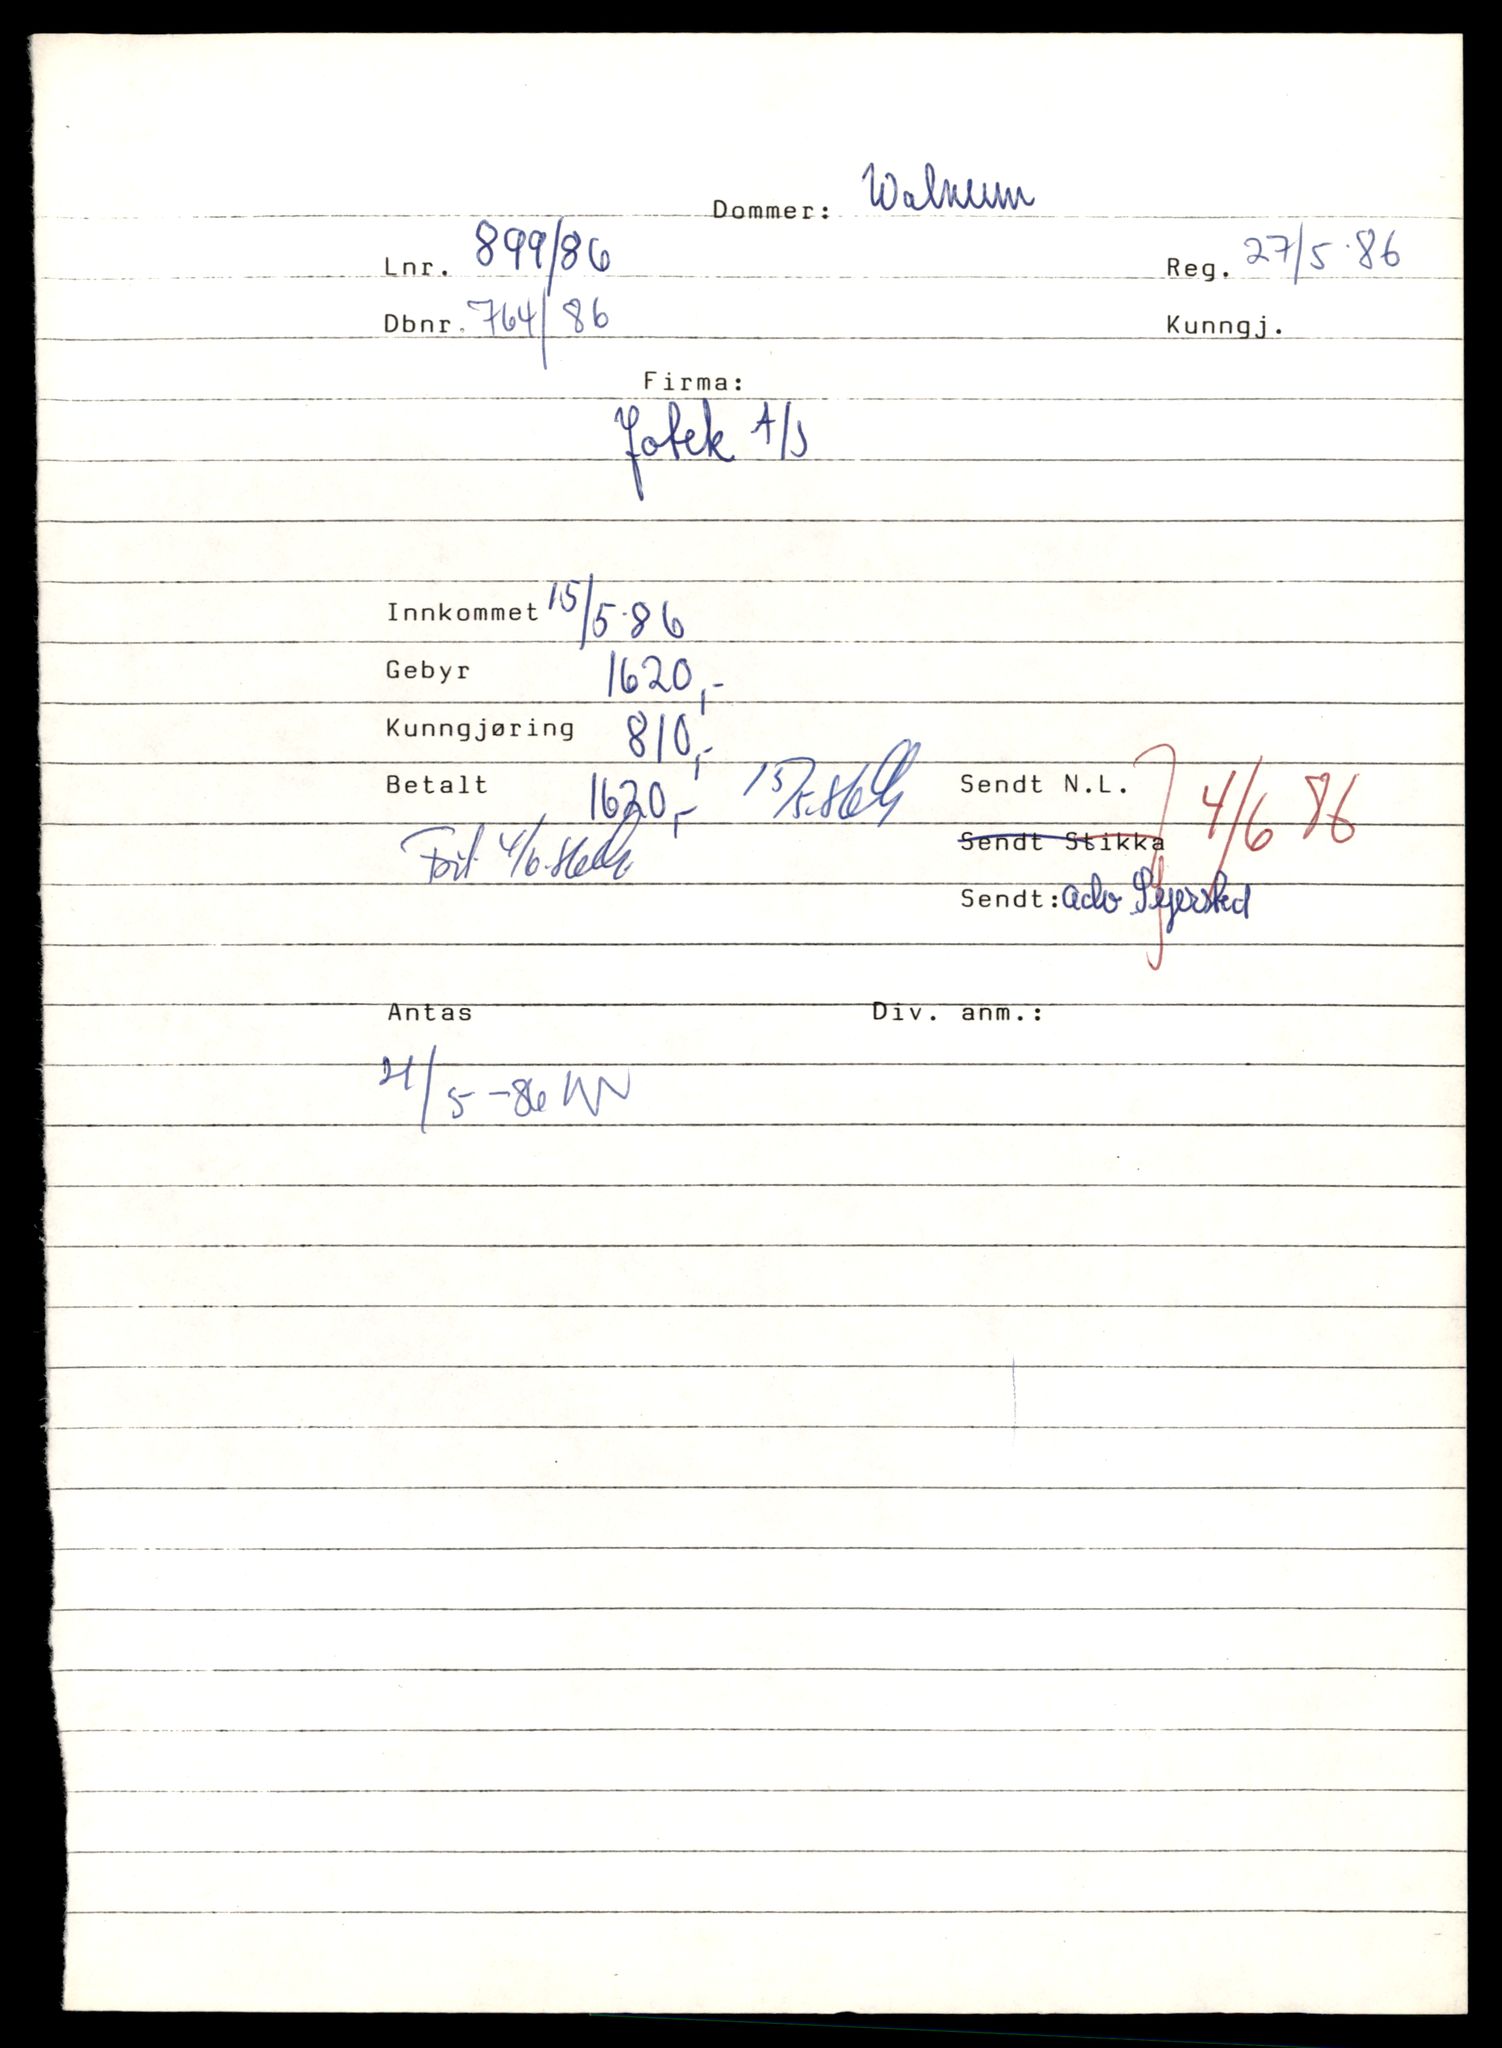 Dommer: Walnum
Lnr. 899/86 Reg. 27/5.86
Dbnr. 764/86 Kunngj.
Firma:
Jotek A/S
Innkommet 15/5.86
Gebyr 1620,-
Kunngjøring 810,-
Betalt 1620,- 15/5.86 Sendt N.L. 4/6 86
4/6.86 Sendt Stikka
Sendt: adv Sejersted
Antas Div. anm.:
21/5-86